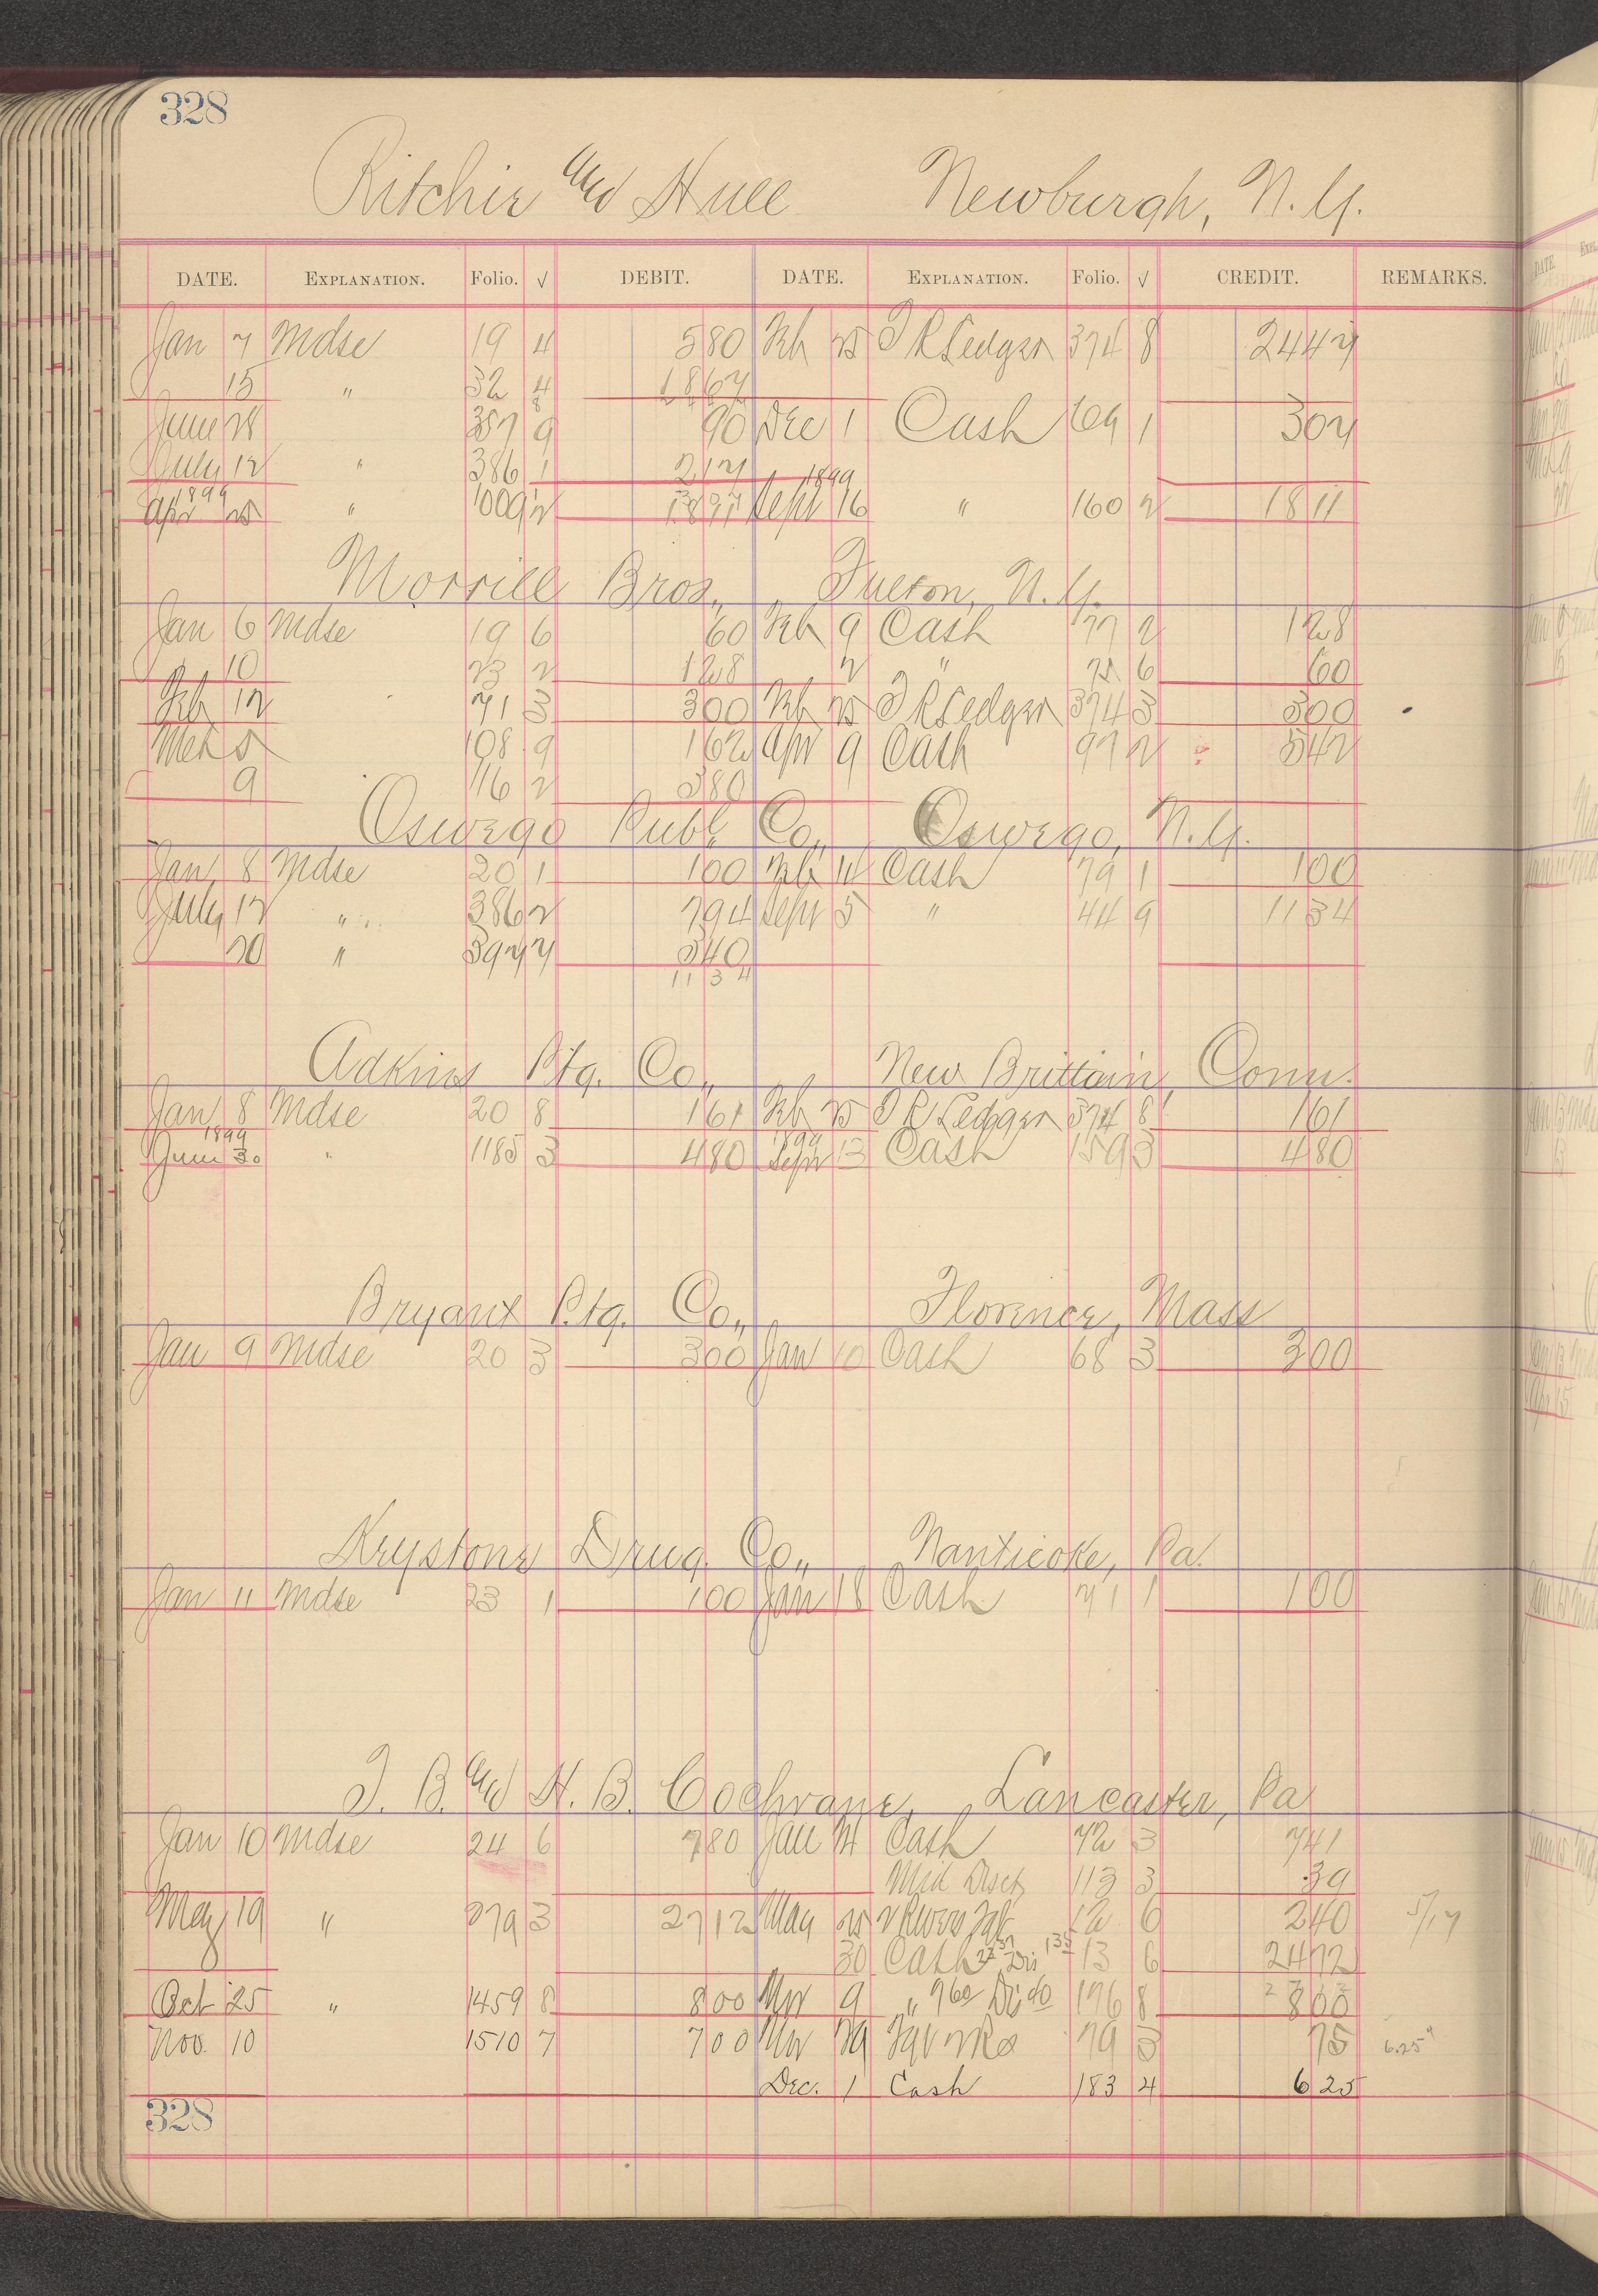 328
Ritchie and Hull Newburgh, N.Y.
DATE. EXPLANATION. Folio. √ DEBIT. DATE. EXPLANATION. Folio. √ CREDIT. REMARKS.
Jan 7 Mdse 19 4 5 80 Feb 25 P R Ledger 374 8 24 47
15 " 32 4 18 67
June 28 357 9 90 Dec 1 Cash 169 1 3 07
July 12 " 386 1 2 17 1899
1899
Apr 25 " 1009 2 Sept 16 " 160 2 18 11
Morrill Bros., Fulton, N.Y.
Jan 6 Mdse 19 6 60 Feb 9 Cash 77 2 1 28
10 23 2 1 28 " 6 60
Feb 12 71 3 3 00 Feb 25 P R Ledger 374 3 3 00
Mch 5 108 9 1 62 Apr 9 Cash 97 2 5 42
9 116 2 3 80
Oswego Publ. Co., Oswego, N.Y.
Jan 8 Mdse 20 1 1 00 Feb 11 Cash 79 1 1 00
July 12 " 386 2 7 94 Sept 5 " 44 9 11 34
20 " 397 7 3 40
11 3 4
Adkins Ptg. Co., New Brittain, Conn.
Jan 8 Mdse 20 8 1 61 Feb 25 P R Ledger 374 8 1 61
1899 1899
June 30 " 1185 3 4 80 Sept 13 Cash 159 3 4 80
Bryant Ptg. Co., Florence, Mass
Jan 9 Mdse 20 3 3 00 Jan 10 Cash 68 3 3 00
Keystone Drug Co., Nanticoke, Pa.
Jan 11 Mdse 23 1 1 00 Jan 18 Cash 71 1 1 00
J. B. and H. B. Cochrane, Lancaster, Pa
Jan 10 Mdse 24 6 7 80 Jan 14 Cash 72 3 7 41
Mid Disct 113 3 39
May 19 " 279 3 27 12 May 25 12 6 2 40 5/17
30 Cash 13 6 24 72
Oct 25 " 1459 8 8 00 Nov 9 " 760 Di 40 176 8 8 00
Nov. 10 1510 7 7 00 Nov 79 3 75 6.25
Dec. 1 Cash 183 4 6 25
328